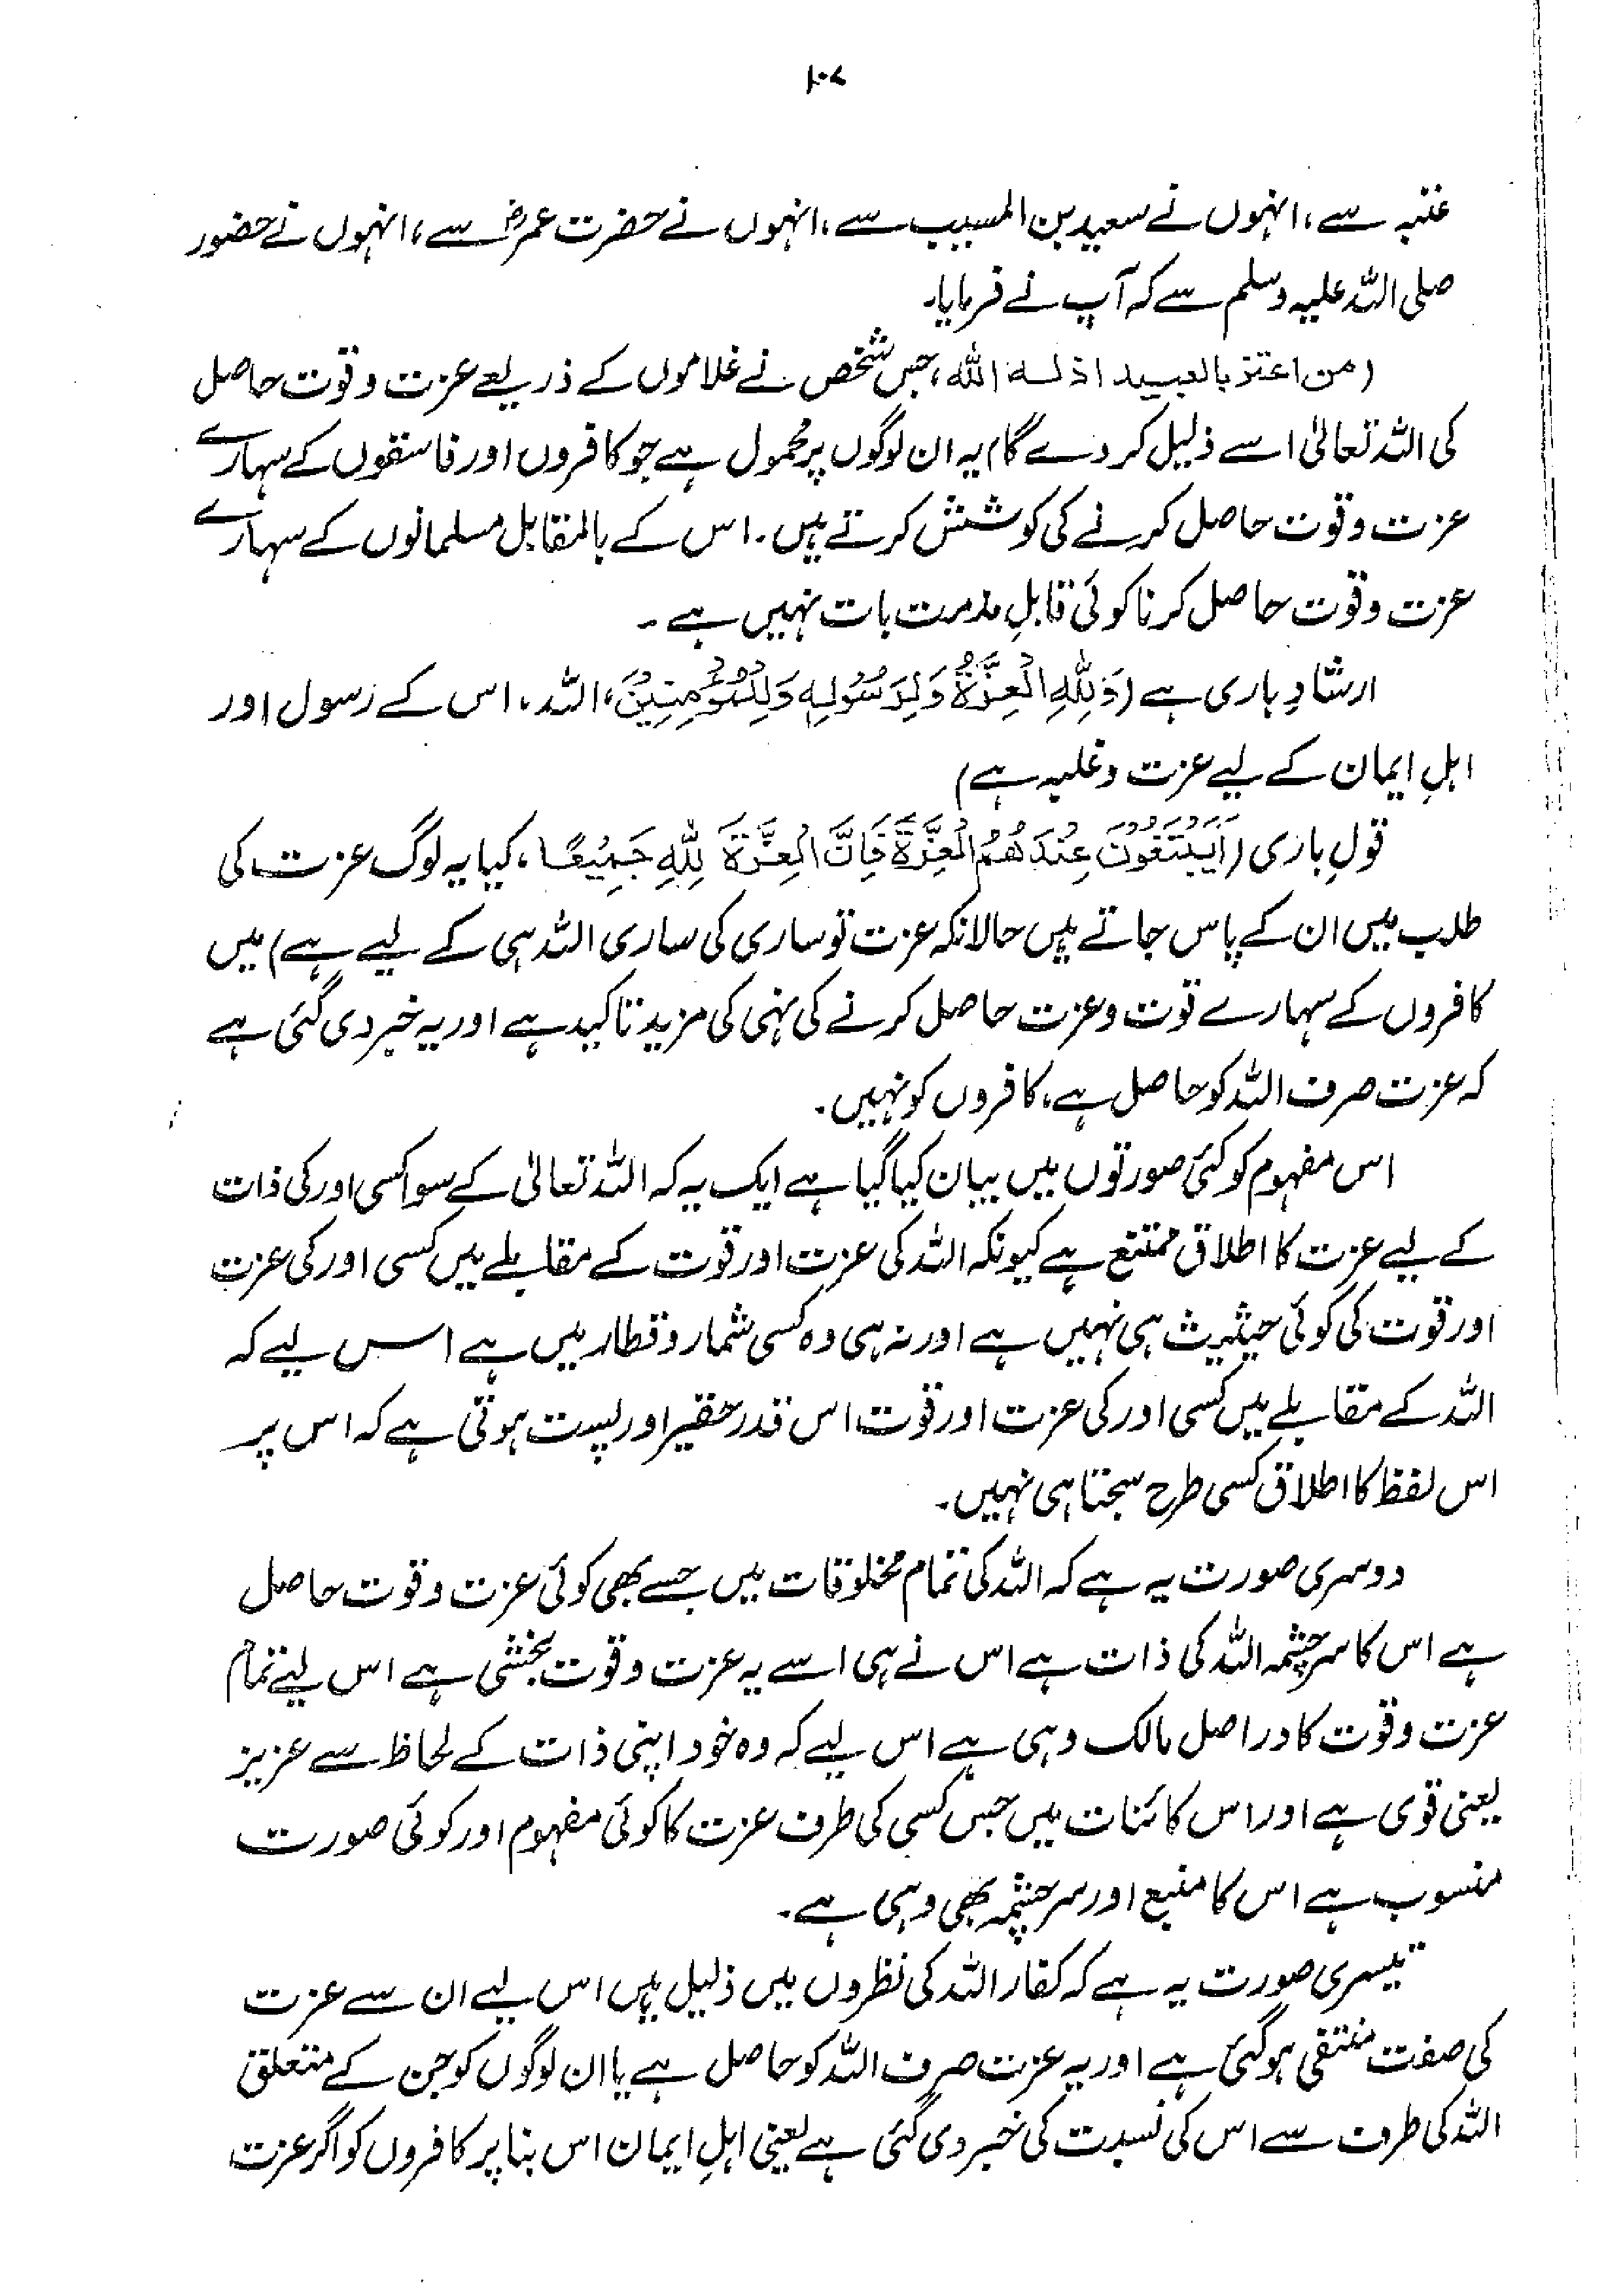 ۱۰۷
عتبہ سے، انہوں نے سعید بن المسیب سے، انہوں نے حضرت عمرؓ سے، انہوں نے حضور
صلی اللہ علیہ وسلم سے کہ آپ نے فرمایا۔
(من اعتز بالعبید اذلہ اللہ، جس شخص نے غلاموں کے ذریعے عزت و قوت حاصل
کی اللہ تعالیٰ اسے ذلیل کر دے گا) یہ ان لوگوں پر محمول ہے جو کافروں اور فاسقوں کے سہارے
عزت و قوت حاصل کرنے کی کوشش کرتے ہیں۔ اس کے بالمقابل مسلمانوں کے سہارے
عزت و قوت حاصل کرنا کوئی قابلِ مذمت بات نہیں ہے۔
ارشادِ باری ہے (وَلِلّٰهِ الْعِزَّةُ وَلِرَسُوْلِهٖ وَلِلْمُؤْمِنِيْنَ، اللہ، اس کے رسول اور
اہلِ ایمان کے لیے عزت و غلبہ ہے)
قولِ باری (اَيَبْتَغُوْنَ عِنْدَهُمُ الْعِزَّةَ فَاِنَّ الْعِزَّةَ لِلّٰهِ جَمِيْعًا، کیا یہ لوگ عزت کی
طلب میں ان کے پاس جاتے ہیں حالانکہ عزت تو ساری کی ساری اللہ ہی کے لیے ہے) میں
کافروں کے سہارے قوت و عزت حاصل کرنے کی نہی کی مزید تاکید ہے اور یہ خبر دی گئی ہے
کہ عزت صرف اللہ کو حاصل ہے، کافروں کو نہیں۔
اس مفہوم کو کئی صورتوں میں بیان کیا گیا ہے ایک یہ کہ اللہ تعالیٰ کے سوا کسی اور کی ذات
کے لیے عزت کا اطلاق ممتنع ہے کیونکہ اللہ کی عزت اور قوت کے مقابلے میں کسی اور کی عزت
اور قوت کی کوئی حیثیت ہی نہیں ہے اور نہ ہی وہ کسی شمار و قطار میں ہے اس لیے کہ
اللہ کے مقابلے میں کسی اور کی عزت اور قوت اس قدر حقیر اور پست ہوتی ہے کہ اس پر
اس لفظ کا اطلاق کسی طرح سجتا ہی نہیں۔
دوسری صورت یہ ہے کہ اللہ کی تمام مخلوقات میں جسے بھی کوئی عزت و قوت حاصل
ہے اس کا سرچشمہ اللہ کی ذات ہے اس نے ہی اسے یہ عزت و قوت بخشی ہے اس لیے تمام
عزت و قوت کا دراصل مالک وہی ہے اس لیے کہ وہ خود اپنی ذات کے لحاظ سے عزیز
یعنی قوی ہے اور اس کائنات میں جس کسی کی طرف عزت کا کوئی مفہوم اور کوئی صورت
منسوب ہے اس کا منبع اور سرچشمہ بھی وہی ہے۔
تیسری صورت یہ ہے کہ کفار اللہ کی نظروں میں ذلیل ہیں اس لیے ان سے عزت
کی صفت منتفی ہو گئی ہے اور یہ عزت صرف اللہ کو حاصل ہے یا ان لوگوں کو جن کے متعلق
اللہ کی طرف سے اس کی نسبت کی خبر دی گئی ہے یعنی اہلِ ایمان اس بنا پر کافروں کو اگر عزت